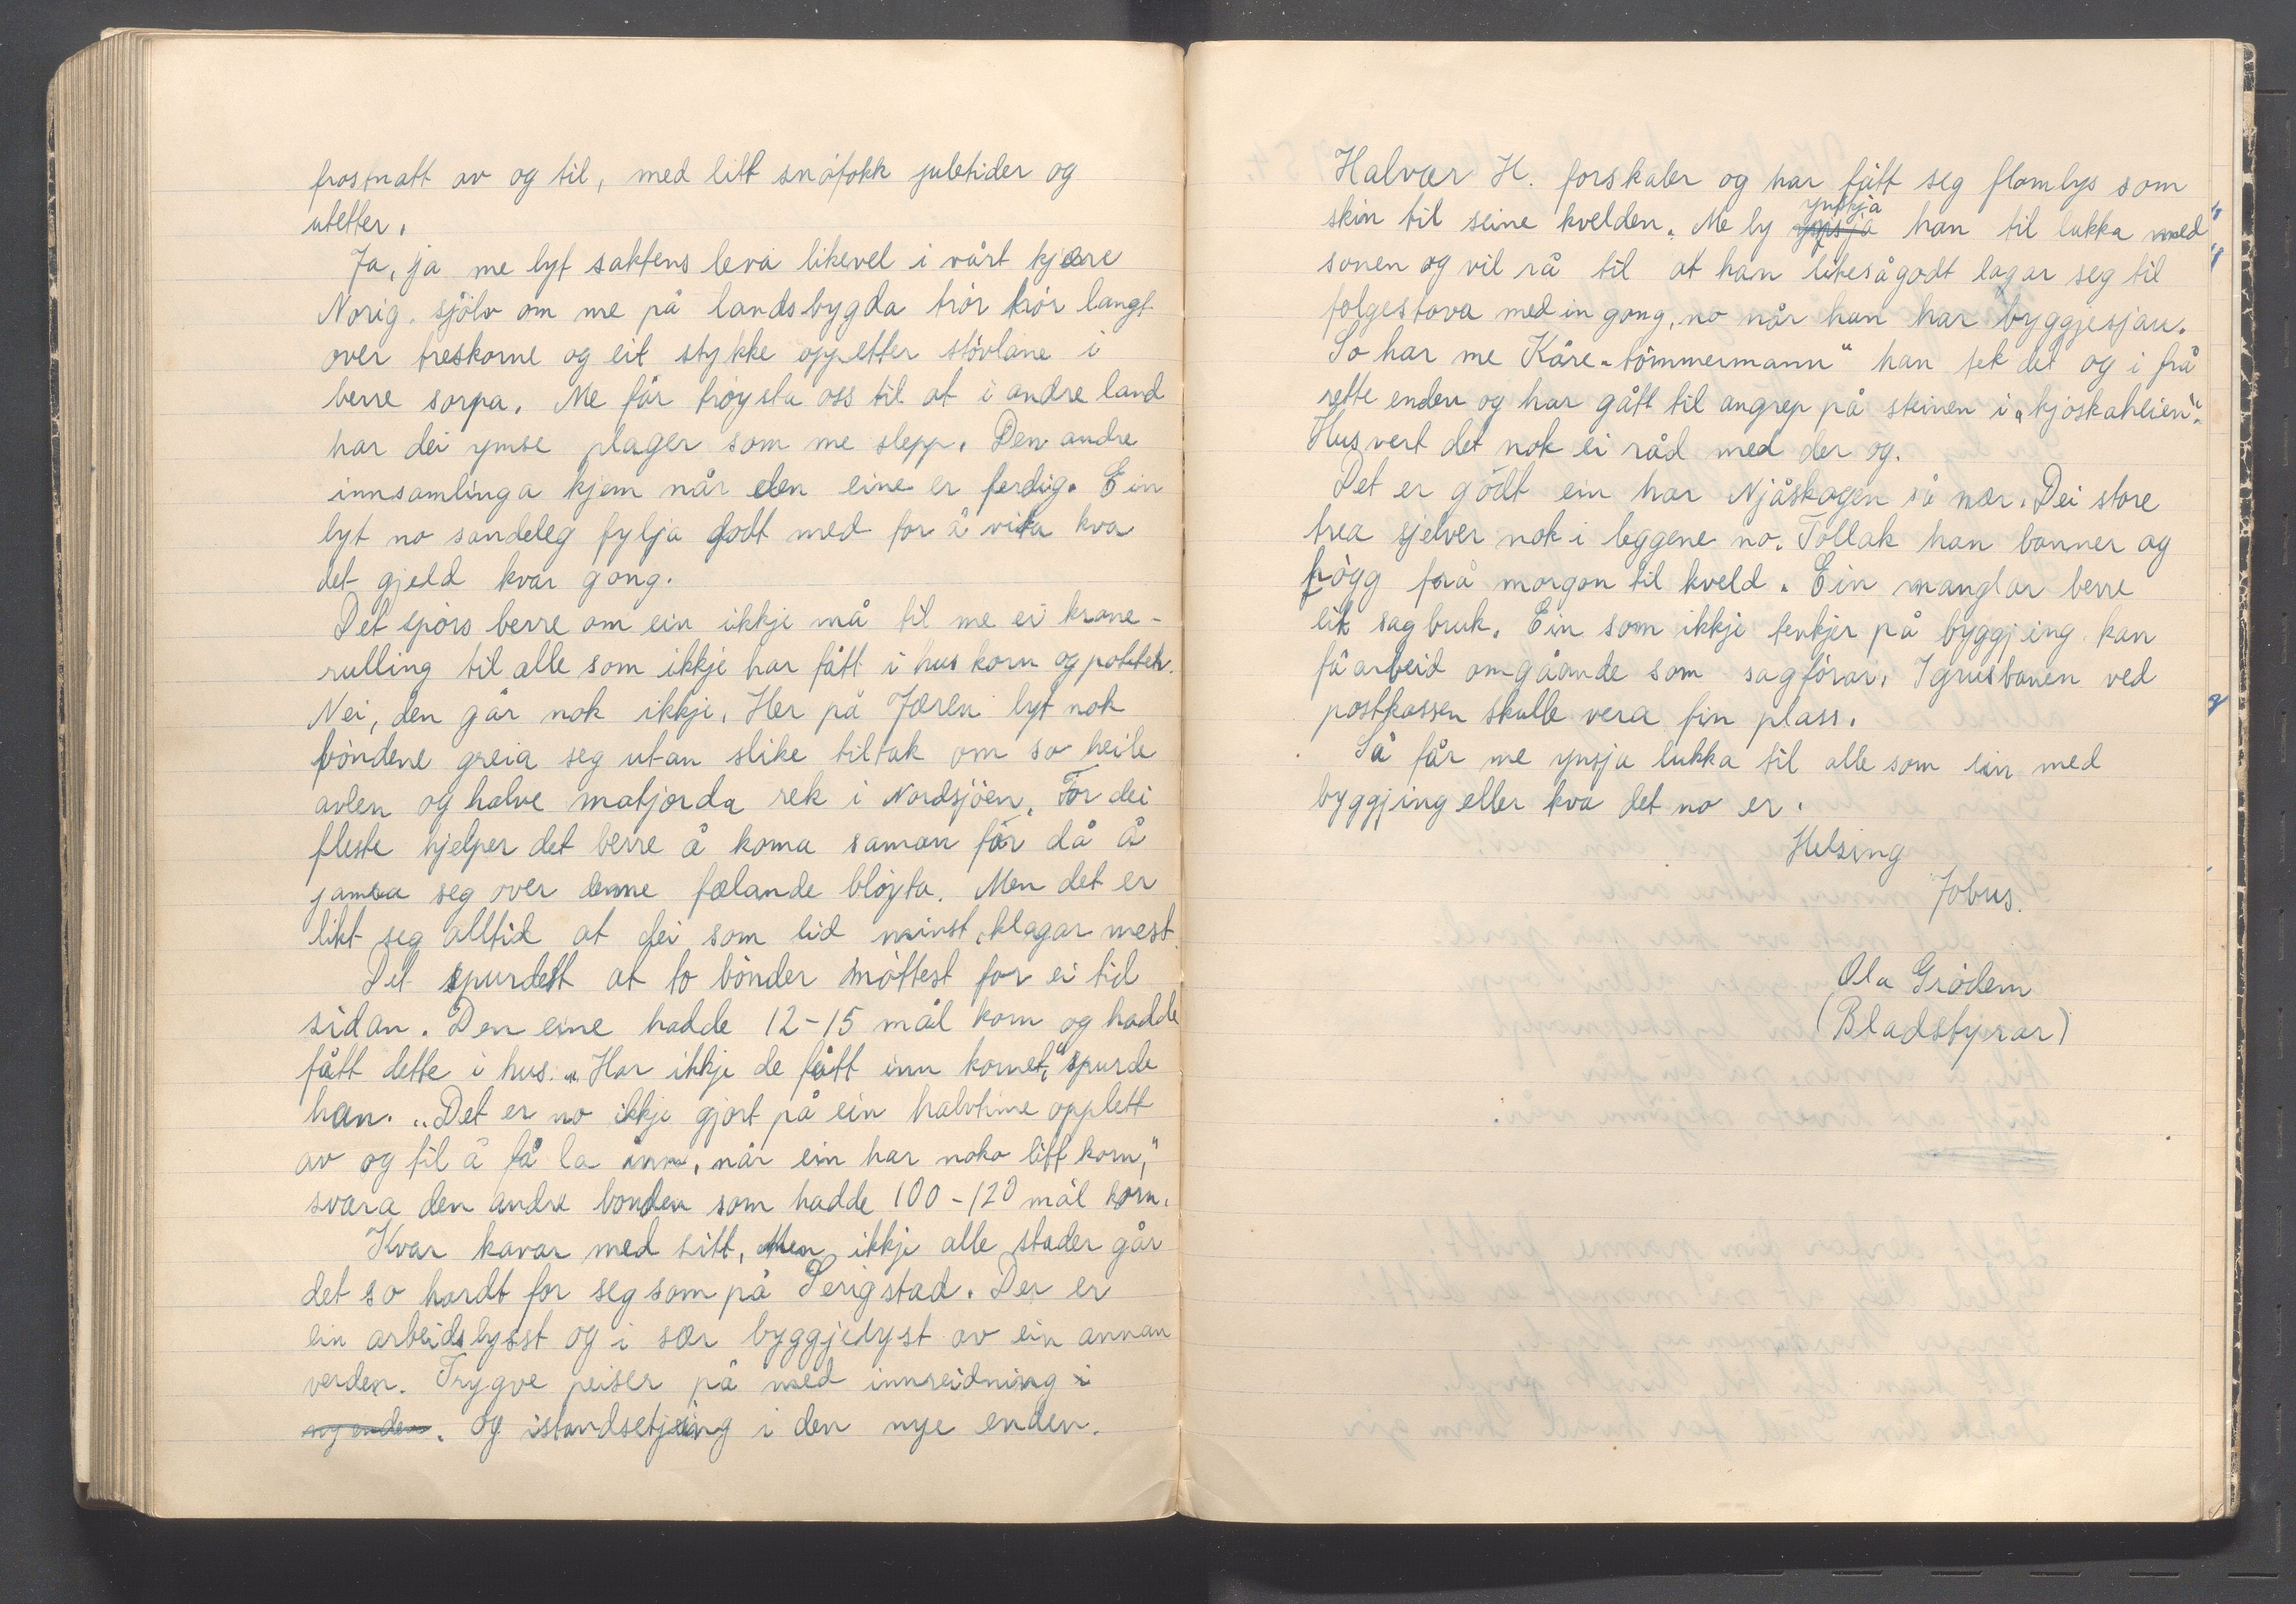 frostnatt av og til, med litt snøfokk juletider og
utetter.
Ja, ja me lyt saktens leva likevel i vårt kjære
Norig. sjölv om me på landsbygda trör trör langt
over treskorne og eit stykke oppetter stövlane i
berre sorpa. Me får tröysta oss til at i andre land
har dei ymse plager som me slepp. Den andre
innsamlinga kjem når den eine er ferdig. Ein
lyt no sandeleg fylja godt med for å vita kva
det gjeld kvar gong.
Det spörs berre om ein ikkje må til me ei krone-
rulling til alle som ikkje har fått i hus korn og poteter.
Nei, den går nok ikkje. Her på Jæren lyt nok
böndene greia seg utan slike tiltak om so heile
avlen og halve matjorda rek i Nordsjöen. For dei
fleste hjelper det berre å koma saman för då å
jamra seg over denne fælande blöyta. Men det er
likt seg alltid at dei som lid minst, klagar mest.
Det spurdest at to bönder möttest for ei tid
sidan. Den eine hadde 12-15 mål korn og hadde
fått dette i hus. „Har ikkje de fått inn kornet," spurde
han. „Det er no ikkje gjort på ein halvtime opplett
av og til å få la inn, når ein har noko litt korn,"
svara den andre bonden som hadde 100-120 mål korn.
Kvar kavar med sitt, Men ikkje alle stader går
det so hardt for seg som på Serigstad. Der er
ein arbeidslysst og i sær byggjelyst av ein annan
verden. Trygve peiser på med innreidning i
ny enden. og istandsetjeing i den nye enden.
Halvar H. forskaler og har fått seg flomlys som
skin til seine kvelden. Me ly ynskja han til lukka med
sonen og vil rå til at han likesågodt lagar seg til
folgestova med in gong, no når han har byggjesjau.
So har me Kåre „tömmermann" han tek det og i frå
rette enden og har gått til angrep på steinen i „kjoskaheien".
Hus vert det nok ei råd med der og.
Det er godt ein har Njåskogen så nær. Dei store
trea sjelver nok i leggene no. Tollak han banner og
högg frå morgon til kveld. Ein manglar berre
lik sagbruk. Ein som ikkje tenkjer på byggjeing kan
få arbeid omgåande som sagförar. I grusbanen ved
postkassen skulle vera fin plass.
Så får me ynsja lukka til alle som ein med
byggjing eller kva det no er.
Helsing
Jobus.
Ola Grödem
(Bladstyrar)